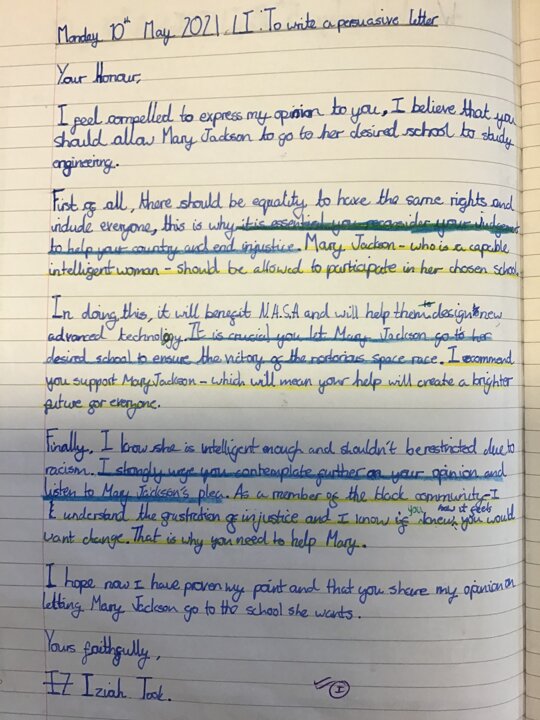 Monday 10th May 2021 LI: To write a persuasive letter
Your Honour,
I feel compelled to express my opinion to you, I believe that you
should allow Mary Jackson to go to her desired school to study
engineering.
First of all, there should be equality to have the same rights and
include everyone, this is why it is essential you reconsider your
to help your country and end injustice. Mary Jackson - who is a capable
intelligent woman - should be allowed to participate in her chosen school.
In doing this, it will benefit N.A.S.A and will help them to design new
advanced technology. It is crucial you let Mary Jackson go to her
desired school to ensure the victory of the notorious space race. I recommend
you support Mary Jackson - which will mean your help will create a brighter
future for everyone.
Finally, I know she is intelligent enough and shouldn't be restricted due to
racism. I strongly urge you contemplate further on your opinion and
listen to Mary Jackson's plea. As a member of the black community - I
understand the frustration of injustice and I know if you knew how it feels you would
want change. That is why you need to help Mary.
I hope now I have proven my point and that you share my opinion on
letting Mary Jackson go to the school she wants.
Yours faithfully,
Iziah Took.
I